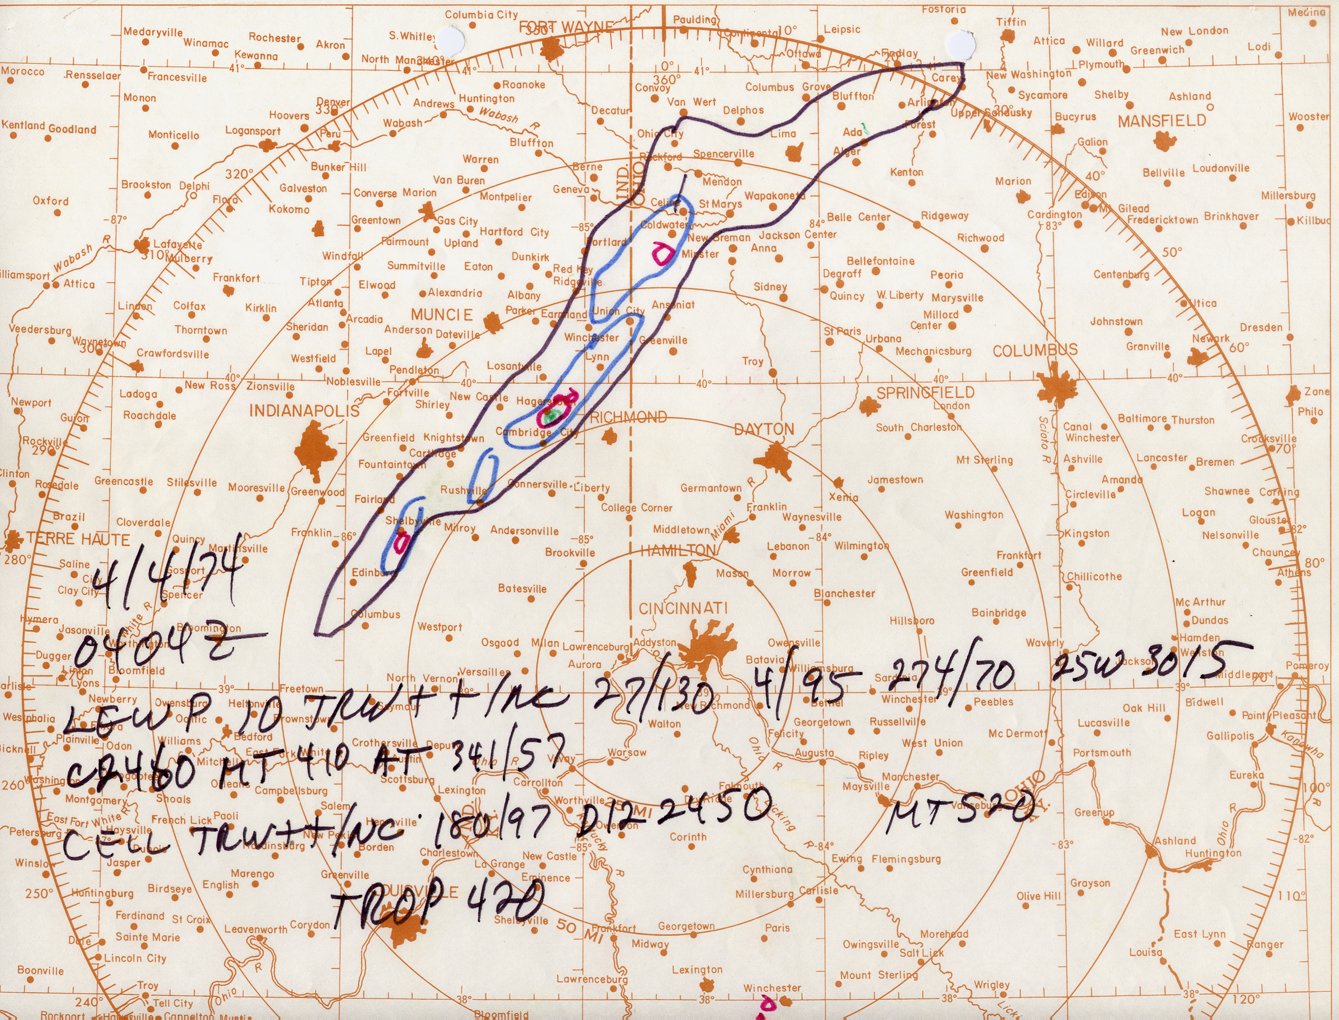 4/4/74
0404Z
LEWP 10 TRW++/NC 27/130 4/95 274/70 25W 3015
MT 410 AT 341/57
CELL TRW++/NC 180/97 D12 2450 MT520
TROP 420
FORT WAYNE
Columbia City
Paulding
Continental
Leipsic
Fostoria
Tiffin
Medina
Medaryville
Winamac
Rochester
Akron
Kewanna
S.Whitley
North Manchester
Ottawa
Findlay
Attica
Willard
New London
Greenwich
Lodi
Plymouth
Morocco
Rensselaer
Francesville
Monon
Roanoke
Huntington
Andrews
Wabash
Wabash R
Convoy
Van Wert
Delphos
Columbus Grove
Bluffton
Carey
Arlington
New Washington
Sycamore
Shelby
Ashland
Upper Sandusky
Bucyrus
MANSFIELD
Wooster
Kentland
Goodland
Monticello
Logansport
Hoovers
Denver
Peru
Bluffton
Decatur
Ohio City
Rockford
Spencerville
Lima
Ada
Alger
Forest
Kenton
Galion
Bellville
Loudonville
Brookston
Delphi
Flora
Galveston
Kokomo
Bunker Hill
Converse
Marion
Van Buren
Warren
Montpelier
Berne
Geneva
Mendon
Celina
St Marys
Wapakoneta
Marion
Edison
Mt Gilead
Cardington
Fredericktown
Brinkhaver
Millersburg
Killbuc
Oxford
Lafayette
Mulberry
Greentown
Gas City
Fairmount
Upland
Hartford City
Portland
Coldwater
New Bremen
Minster
Anna
Jackson Center
Belle Center
Ridgeway
Richwood
Williamsport
Attica
Wabash R
Frankfort
Windfall
Tipton
Elwood
Summitville
Eaton
Dunkirk
Red Key
Ridgeville
Albany
Sidney
Degraff
Quincy
Bellefontaine
W.Liberty
Peoria
Marysville
Centenburg
Utica
Linden
Colfax
Kirklin
Atlanta
Sheridan
Arcadia
Alexandria
MUNCIE
Parker
Farmland
Union City
Ansoniat
Milford Center
Johnstown
Dresden
Veedersburg
Waynetown
Crawfordsville
Thorntown
Westfield
Noblesville
Lapel
Anderson
Dateville
Pendleton
Winchester
Lynn
Greenville
St Paris
Urbana
Mechanicsburg
COLUMBUS
Granville
Newark
Zane
Newport
Ladoga
Roachdale
New Ross
Zionsville
INDIANAPOLIS
Fortville
Shirley
New Castle
Losantville
Hagerstown
Cambridge City
RICHMOND
Troy
SPRINGFIELD
London
South Charleston
DAYTON
Baltimore
Thurston
Philo
Crooksville
Rockville
Clinton
Rosedale
Greencastle
Stilesville
Mooresville
Greenwood
Greenfield
Knightstown
Carthage
Fountaintown
Fairland
Rushville
Connersville
Liberty
Germantown
Xenia
Jamestown
Mt Sterling
Canal Winchester
Ashville
Lancaster
Bremen
Amanda
Circleville
Shawnee
Corning
Brazil
TERRE HAUTE
Cloverdale
Quincy
Martinsville
Franklin
Shelbyville
Milroy
Andersonville
College Corner
Middletown
Franklin
Waynesville
Washington
Kingston
Logan
Nelsonville
Chauncey
Athens
Saline City
Clay City
Gosport
Spencer
Edinburg
Columbus
Brookville
Batesville
HAMILTON
Mason
Lebanon
Morrow
Wilmington
Blanchester
Greenfield
Frankfort
Chillicothe
Hymera
Jasonville
Dugger
Linton
Lyons
Bloomington
Bloomfield
Westport
Osgood
Milan
Lawrenceburg
Aurora
Addyston
CINCINNATI
Batavia
Owensville
Williamsburg
Hillsboro
Bainbridge
Waverly
Jackson
Mc Arthur
Dundas
Hamden
Wellston
Pomeroy
Middleport
Newberry
Owensburg
Freetown
Brownstown
Seymour
North Vernon
Versailles
Walton
New Richmond
Bethel
Georgetown
Felicity
Winchester
Russellville
Peebles
Mc Dermott
Lucasville
Oak Hill
Bidwell
Point Pleasant
Gallipolis
Kanawha
Westphalia
Plainville
Odon
Williams
Bedford
Mitchell
Crothersville
Scottsburg
Vevay
Warsaw
Carrollton
Augusta
Ripley
West Union
Manchester
Maysville
Portsmouth
Eureka
Washington
Montgomery
Shoals
French Lick
Paoli
Campbellsburg
Salem
Lexington
Worthville
Owenton
Falmouth
Corinth
50 MI
Licking R
Vanceburg
OHIO
Greenup
Ashland
Huntington
Petersburg
Winslow
Jasper
Huntingburg
Birdseye
English
Marengo
Hardinsburg
Borden
Greenville
Charlestown
La Grange
New Castle
Eminence
Cynthiana
Millersburg
Carlisle
Ewing
Flemingsburg
Olive Hill
Grayson
Ferdinand
St Croix
Sainte Marie
Lincoln City
Dale
Leavenworth
Corydon
LOUISVILLE
Shelbyville
50 MI
Frankfort
Georgetown
Midway
Paris
Owingsville
Morehead
Salt Lick
East Lynn
Louisa
Ranger
Boonville
Troy
Tell City
Cannelton
Rockport
Ohio R
Lawrenceburg
Bloomfield
Lexington
Winchester
Mount Sterling
Wrigley
Licking
IND.
OHIO
0°
360°
10°
30°
40°
50°
60°
70°
80°
100°
110°
120°
240°
250°
260°
280°
290°
300°
310°
320°
330°
340°
350°